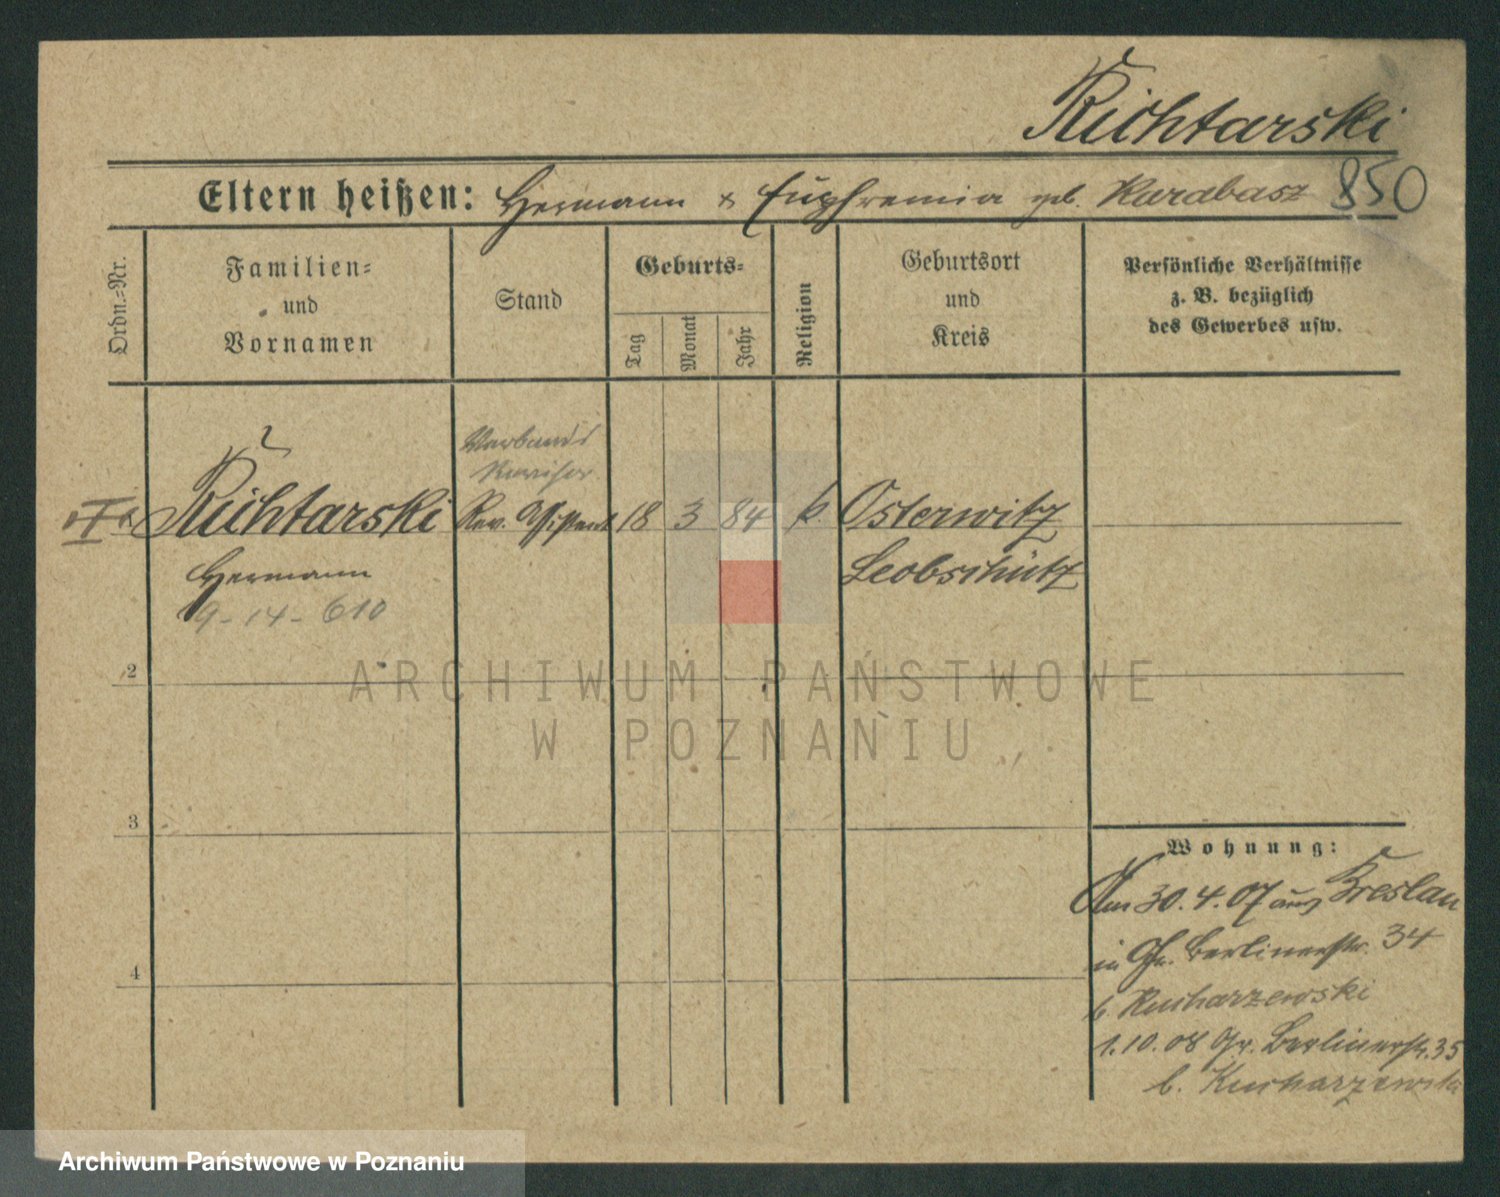 Richtarski
Eltern heißen: Hermann & Euphremia geb. Karabasz 850
Ordn.=Nr.
Familien=
und
Vornamen
Stand
Geburts=
Tag
Monat
Jahr
Religion
Geburtsort
und
Kreis
Persönliche Verhältnisse
z. B. bezüglich
des Gewerbes usw.
Verbands
Revisor
Richtarski Rev. Assistent 18 3 84 k. Osterwitz
Hermann Leobschütz
9-14-610
2
3
4
Wohnung:
Am 30.4.07 aus Breslau
in Berlinerstr. 34
b. Kucharzewski
1.10.08 Gr. Berlinerstr. 35
b. Kucharzewski
ARCHIWUM PAŃSTWOWE
W POZNANIU
Archiwum Państwowe w Poznaniu